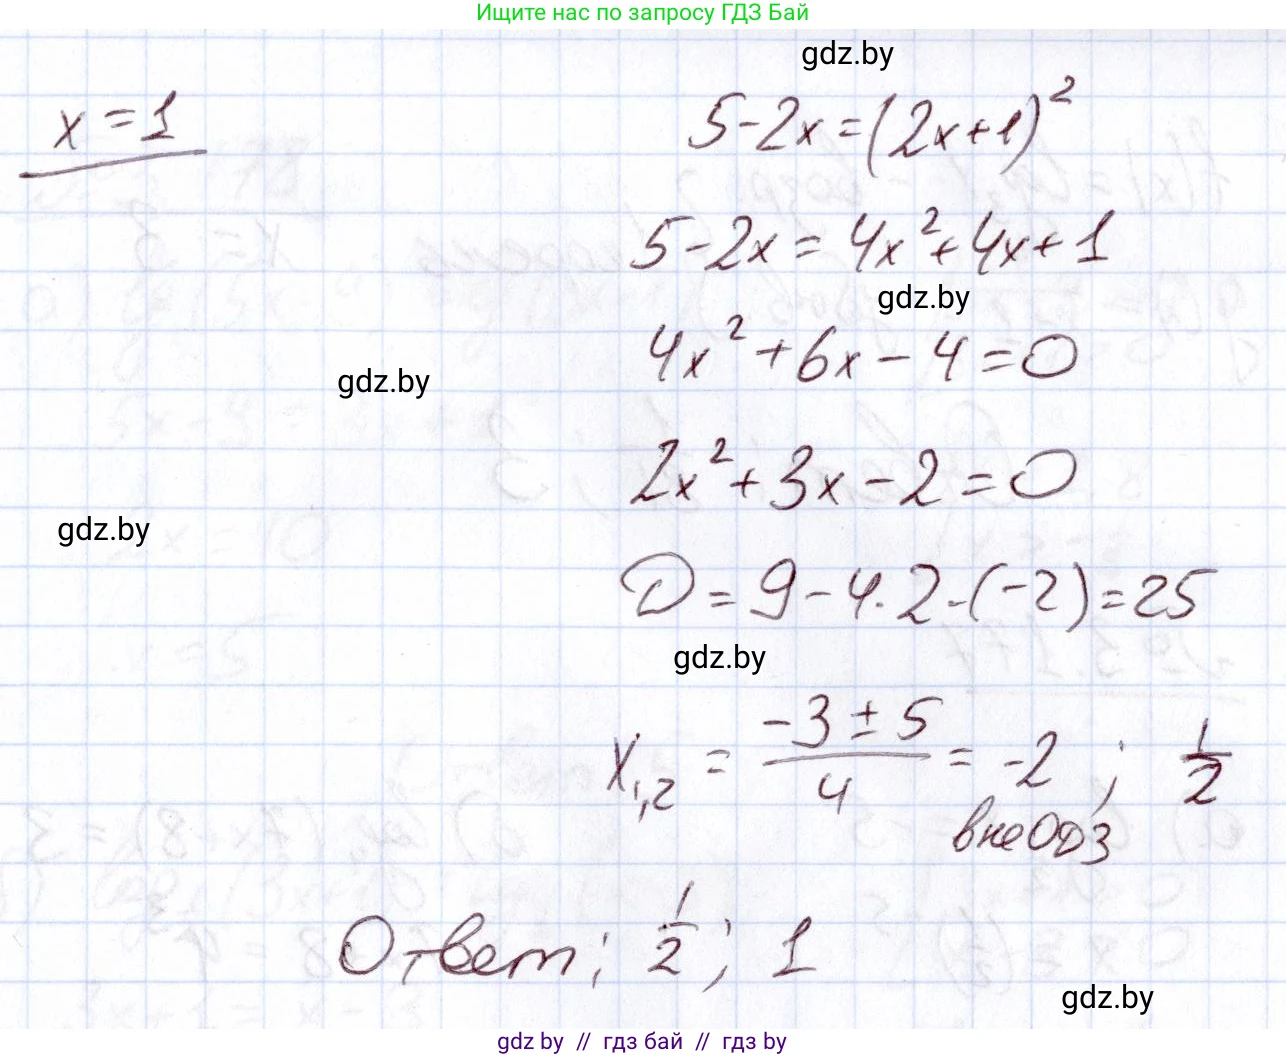 Ищите нас по запросу ГДЗ Бай
gdz.by
x = 1
5-2x=(2x+1)²
5-2x = 4x²+4x+1
gdz.by
4x²+6x-4=0
gdz.by
2x²+3x-2=0
gdz.by
D = 9-4·2·(-2)=25
gdz.by
x₁,₂ = (-3±5)/4 = -2 ; 1/2
вне ОДЗ
Ответ: 1/2 ; 1
gdz.by
gdz.by // гдз бай // гдз by